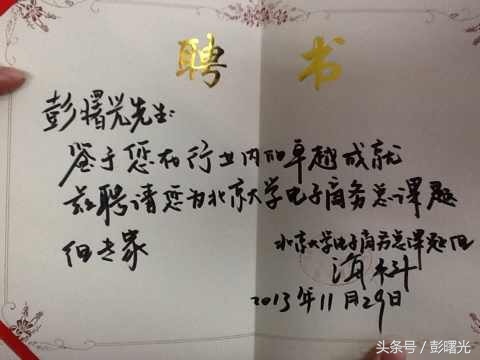 聘书
彭曙光先生:
鉴于您在行业内的卓越成就
兹聘请您为北京大学电子商务总课题
组专家
北京大学电子商务总课题组
2013年11月29日
头条号 / 彭曙光